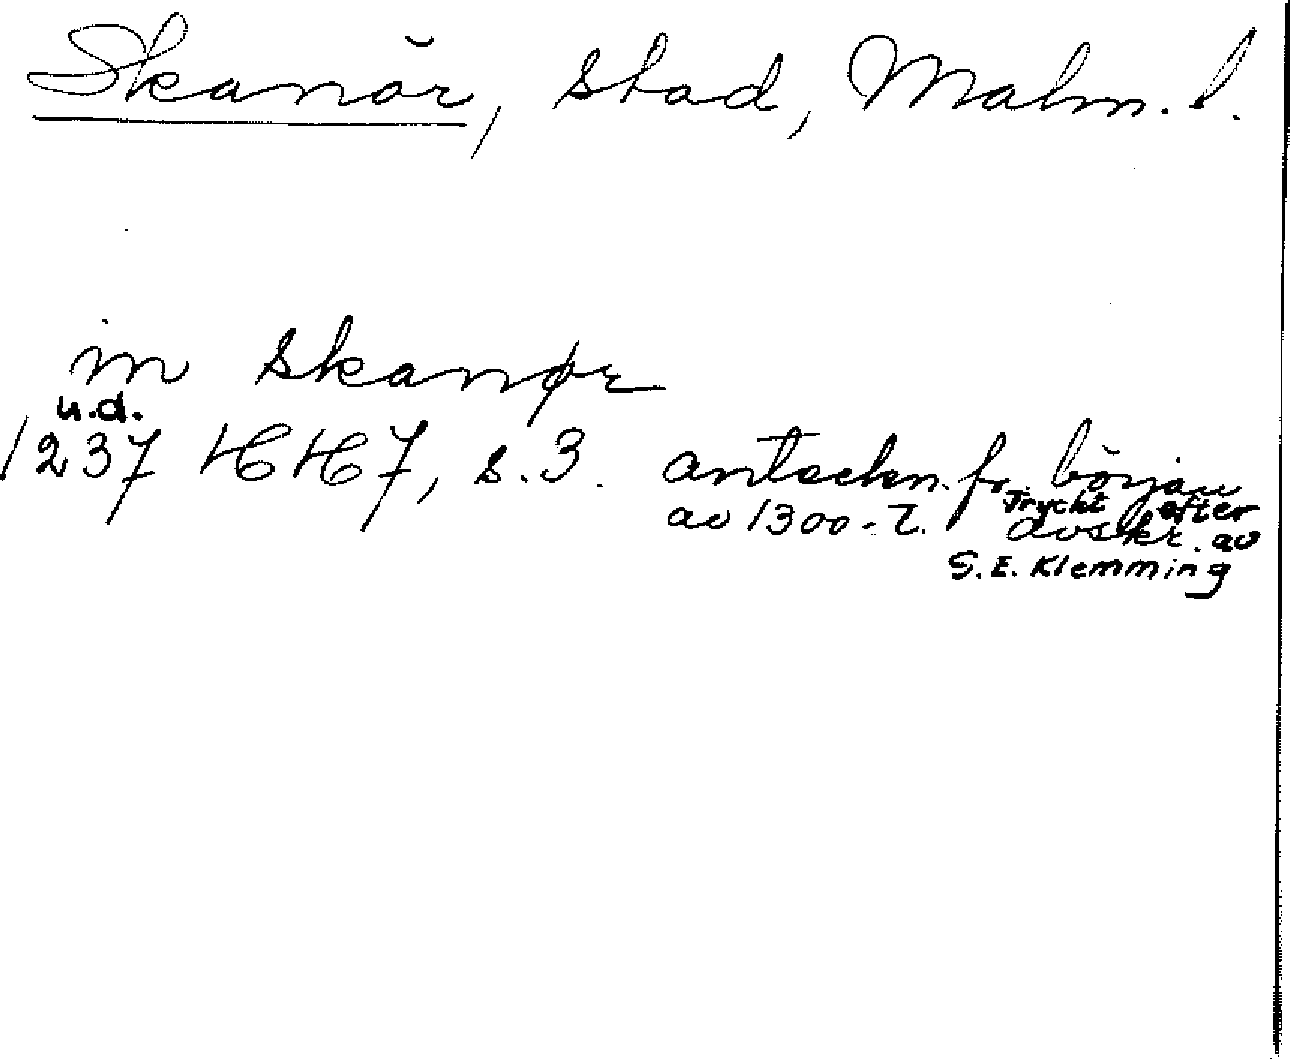 Skanör, stad, Malm. l.
in skanør
u.d.
1237 HH 7, s. 3. anteckn. fr. början
av 1300-t. Tryckt efter
avskr. av
G. E. Klemming